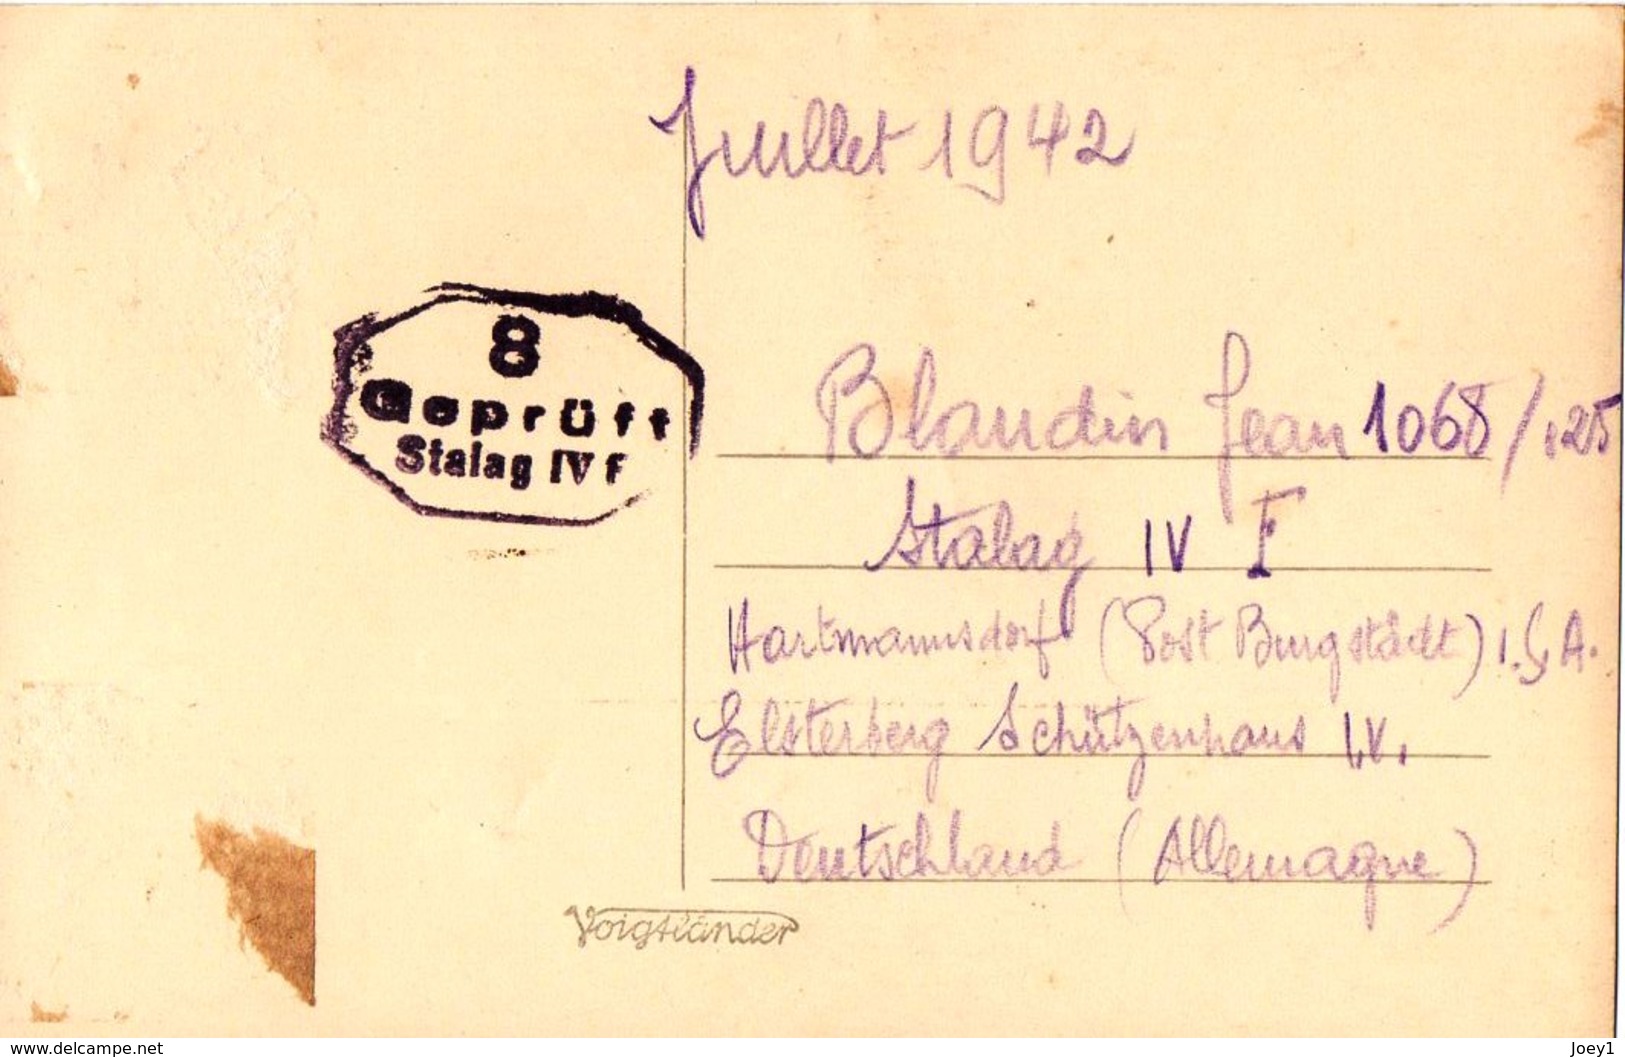 Juillet 1942
8
Geprüft
Stalag IV f
Blandin Jean 1068/125
Stalag IV F
Hartmannsdorf (Post Burgstädt) i.S.A.
Elsterberg Schützenhaus I.V.
Deutschland (Allemagne)
Voigtländer
www.delcampe.net
Joey1